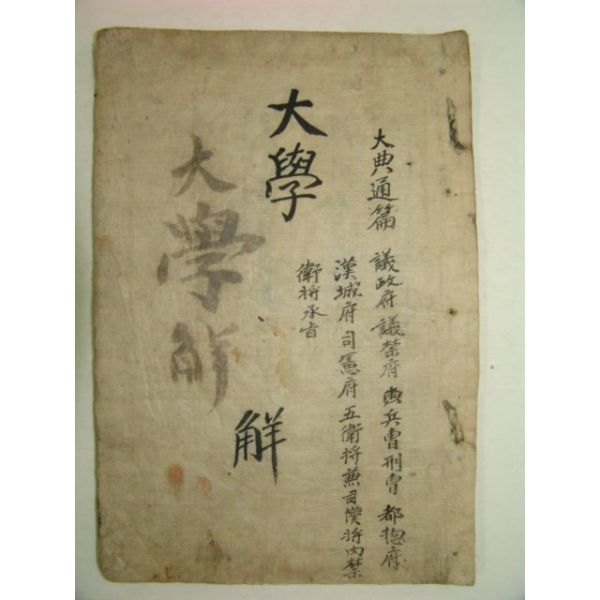 大典通篇 議政府 議禁府 兵曹刑曺 都揔府
漢城府司憲府五衛將兼司僕將內禁
衛將承旨
大學 觧
大學觧